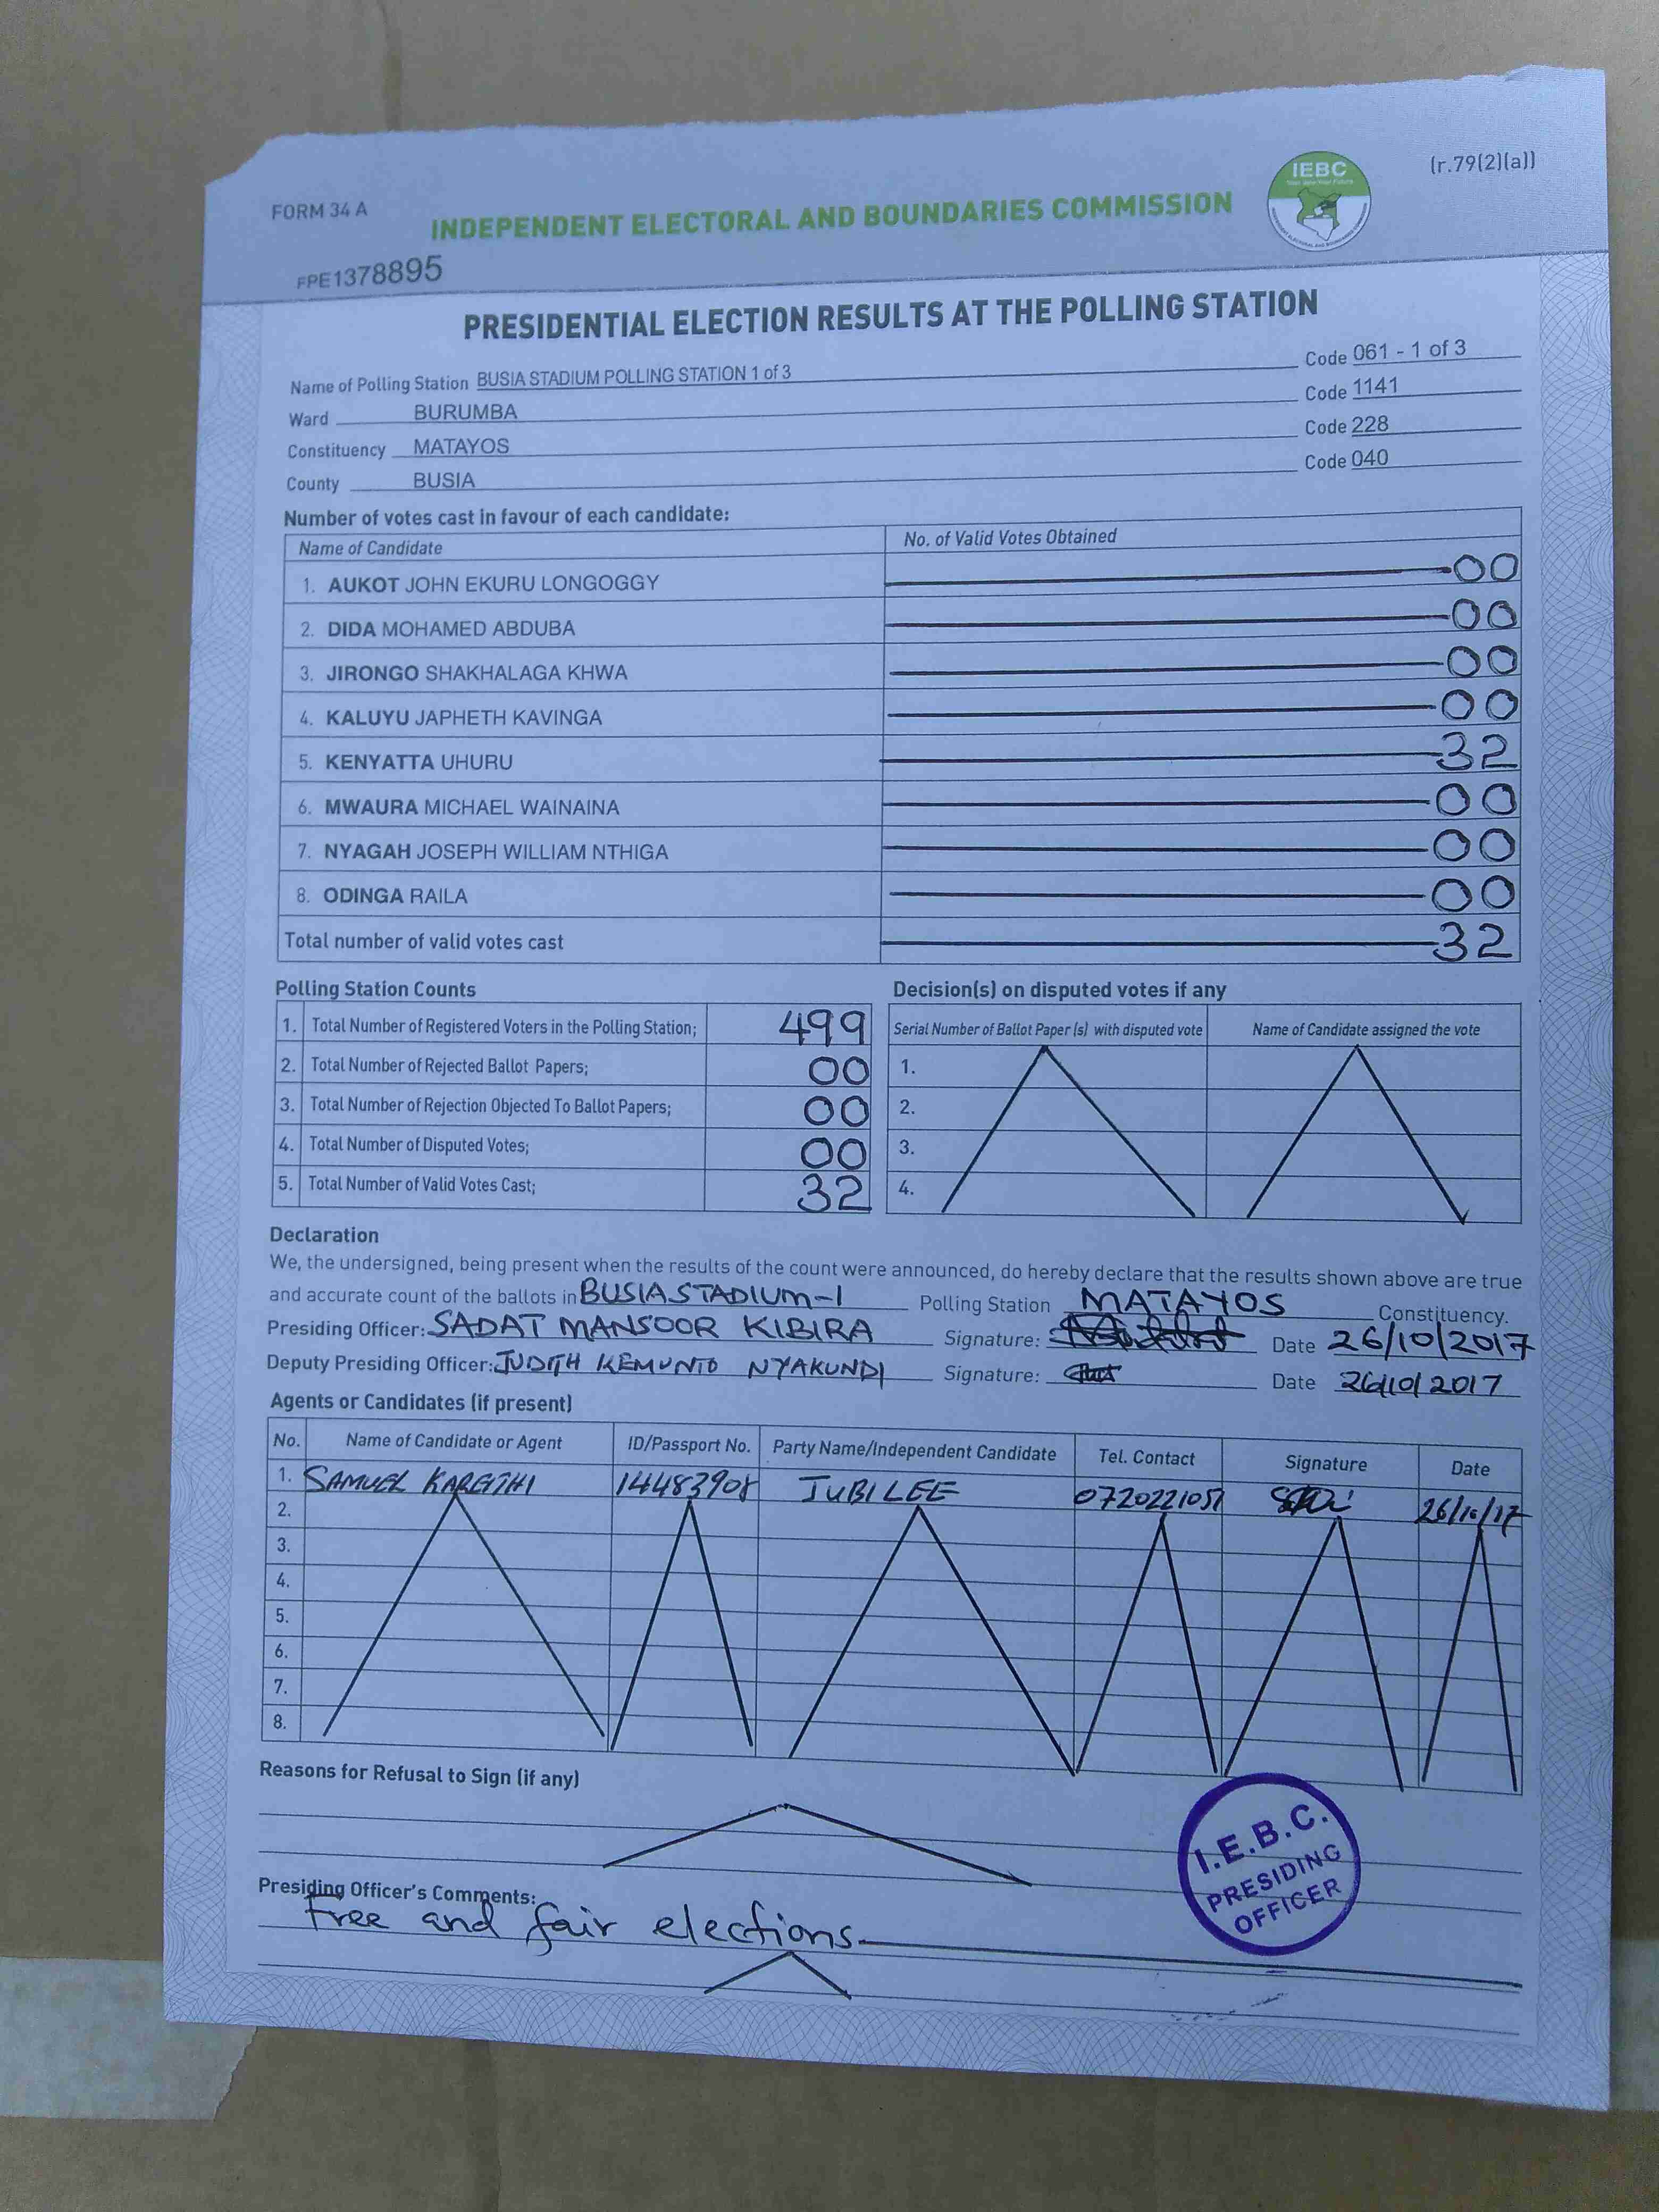 FORM 34 A
INDEPENDENT ELECTORAL AND BOUNDARIES COMMISSION
IEBC
(r.79(2)(a))
FPE1378895
PRESIDENTIAL ELECTION RESULTS AT THE POLLING STATION
Name of Polling Station BUSIA STADIUM POLLING STATION 1 of 3 Code 061 - 1 of 3
Ward BURUMBA Code 1141
Constituency MATAYOS Code 228
County BUSIA Code 040
Number of votes cast in favour of each candidate:
Name of Candidate No. of Valid Votes Obtained
1. AUKOT JOHN EKURU LONGOGGY 00
2. DIDA MOHAMED ABDUBA 00
3. JIRONGO SHAKHALAGA KHWA 00
4. KALUYU JAPHETH KAVINGA 00
5. KENYATTA UHURU 32
6. MWAURA MICHAEL WAINAINA 00
7. NYAGAH JOSEPH WILLIAM NTHIGA 00
8. ODINGA RAILA 00
Total number of valid votes cast 32
Polling Station Counts
1. Total Number of Registered Voters in the Polling Station; 499
2. Total Number of Rejected Ballot Papers; 00
3. Total Number of Rejection Objected To Ballot Papers; 00
4. Total Number of Disputed Votes; 00
5. Total Number of Valid Votes Cast; 32
Decision(s) on disputed votes if any
Serial Number of Ballot Paper (s) with disputed vote Name of Candidate assigned the vote
1.
2.
3.
4.
Declaration
We, the undersigned, being present when the results of the count were announced, do hereby declare that the results shown above are true
and accurate count of the ballots in BUSIA STADIUM-1 Polling Station MATAYOS Constituency.
Presiding Officer: SADAT MANSOOR KIBIRA Signature: Date 26/10/2017
Deputy Presiding Officer: JUDITH KEMUNTO NYAKUNDI Signature: Date 26/10/2017
Agents or Candidates (if present)
No. Name of Candidate or Agent ID/Passport No. Party Name/Independent Candidate Tel. Contact Signature Date
1. SAMUEL KAREITHI 14483908 JUBILEE 0720221051 26/10/17
2.
3.
4.
5.
6.
7.
8.
Reasons for Refusal to Sign (if any)
I.E.B.C.
PRESIDING
OFFICER
Presiding Officer's Comments:
Free and fair elections